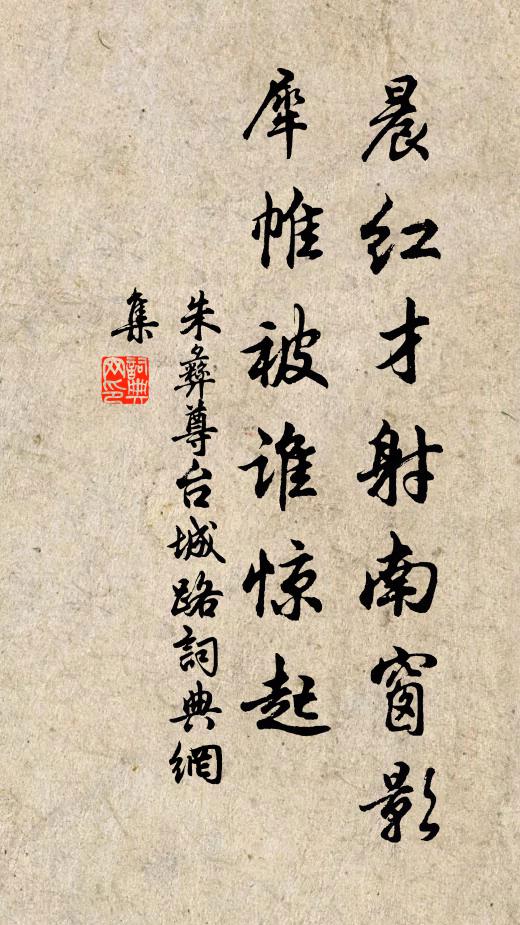 晨红才射南窗影
犀帷被谁惊起
朱彝尊台城路詞典網
集
詞典
网印